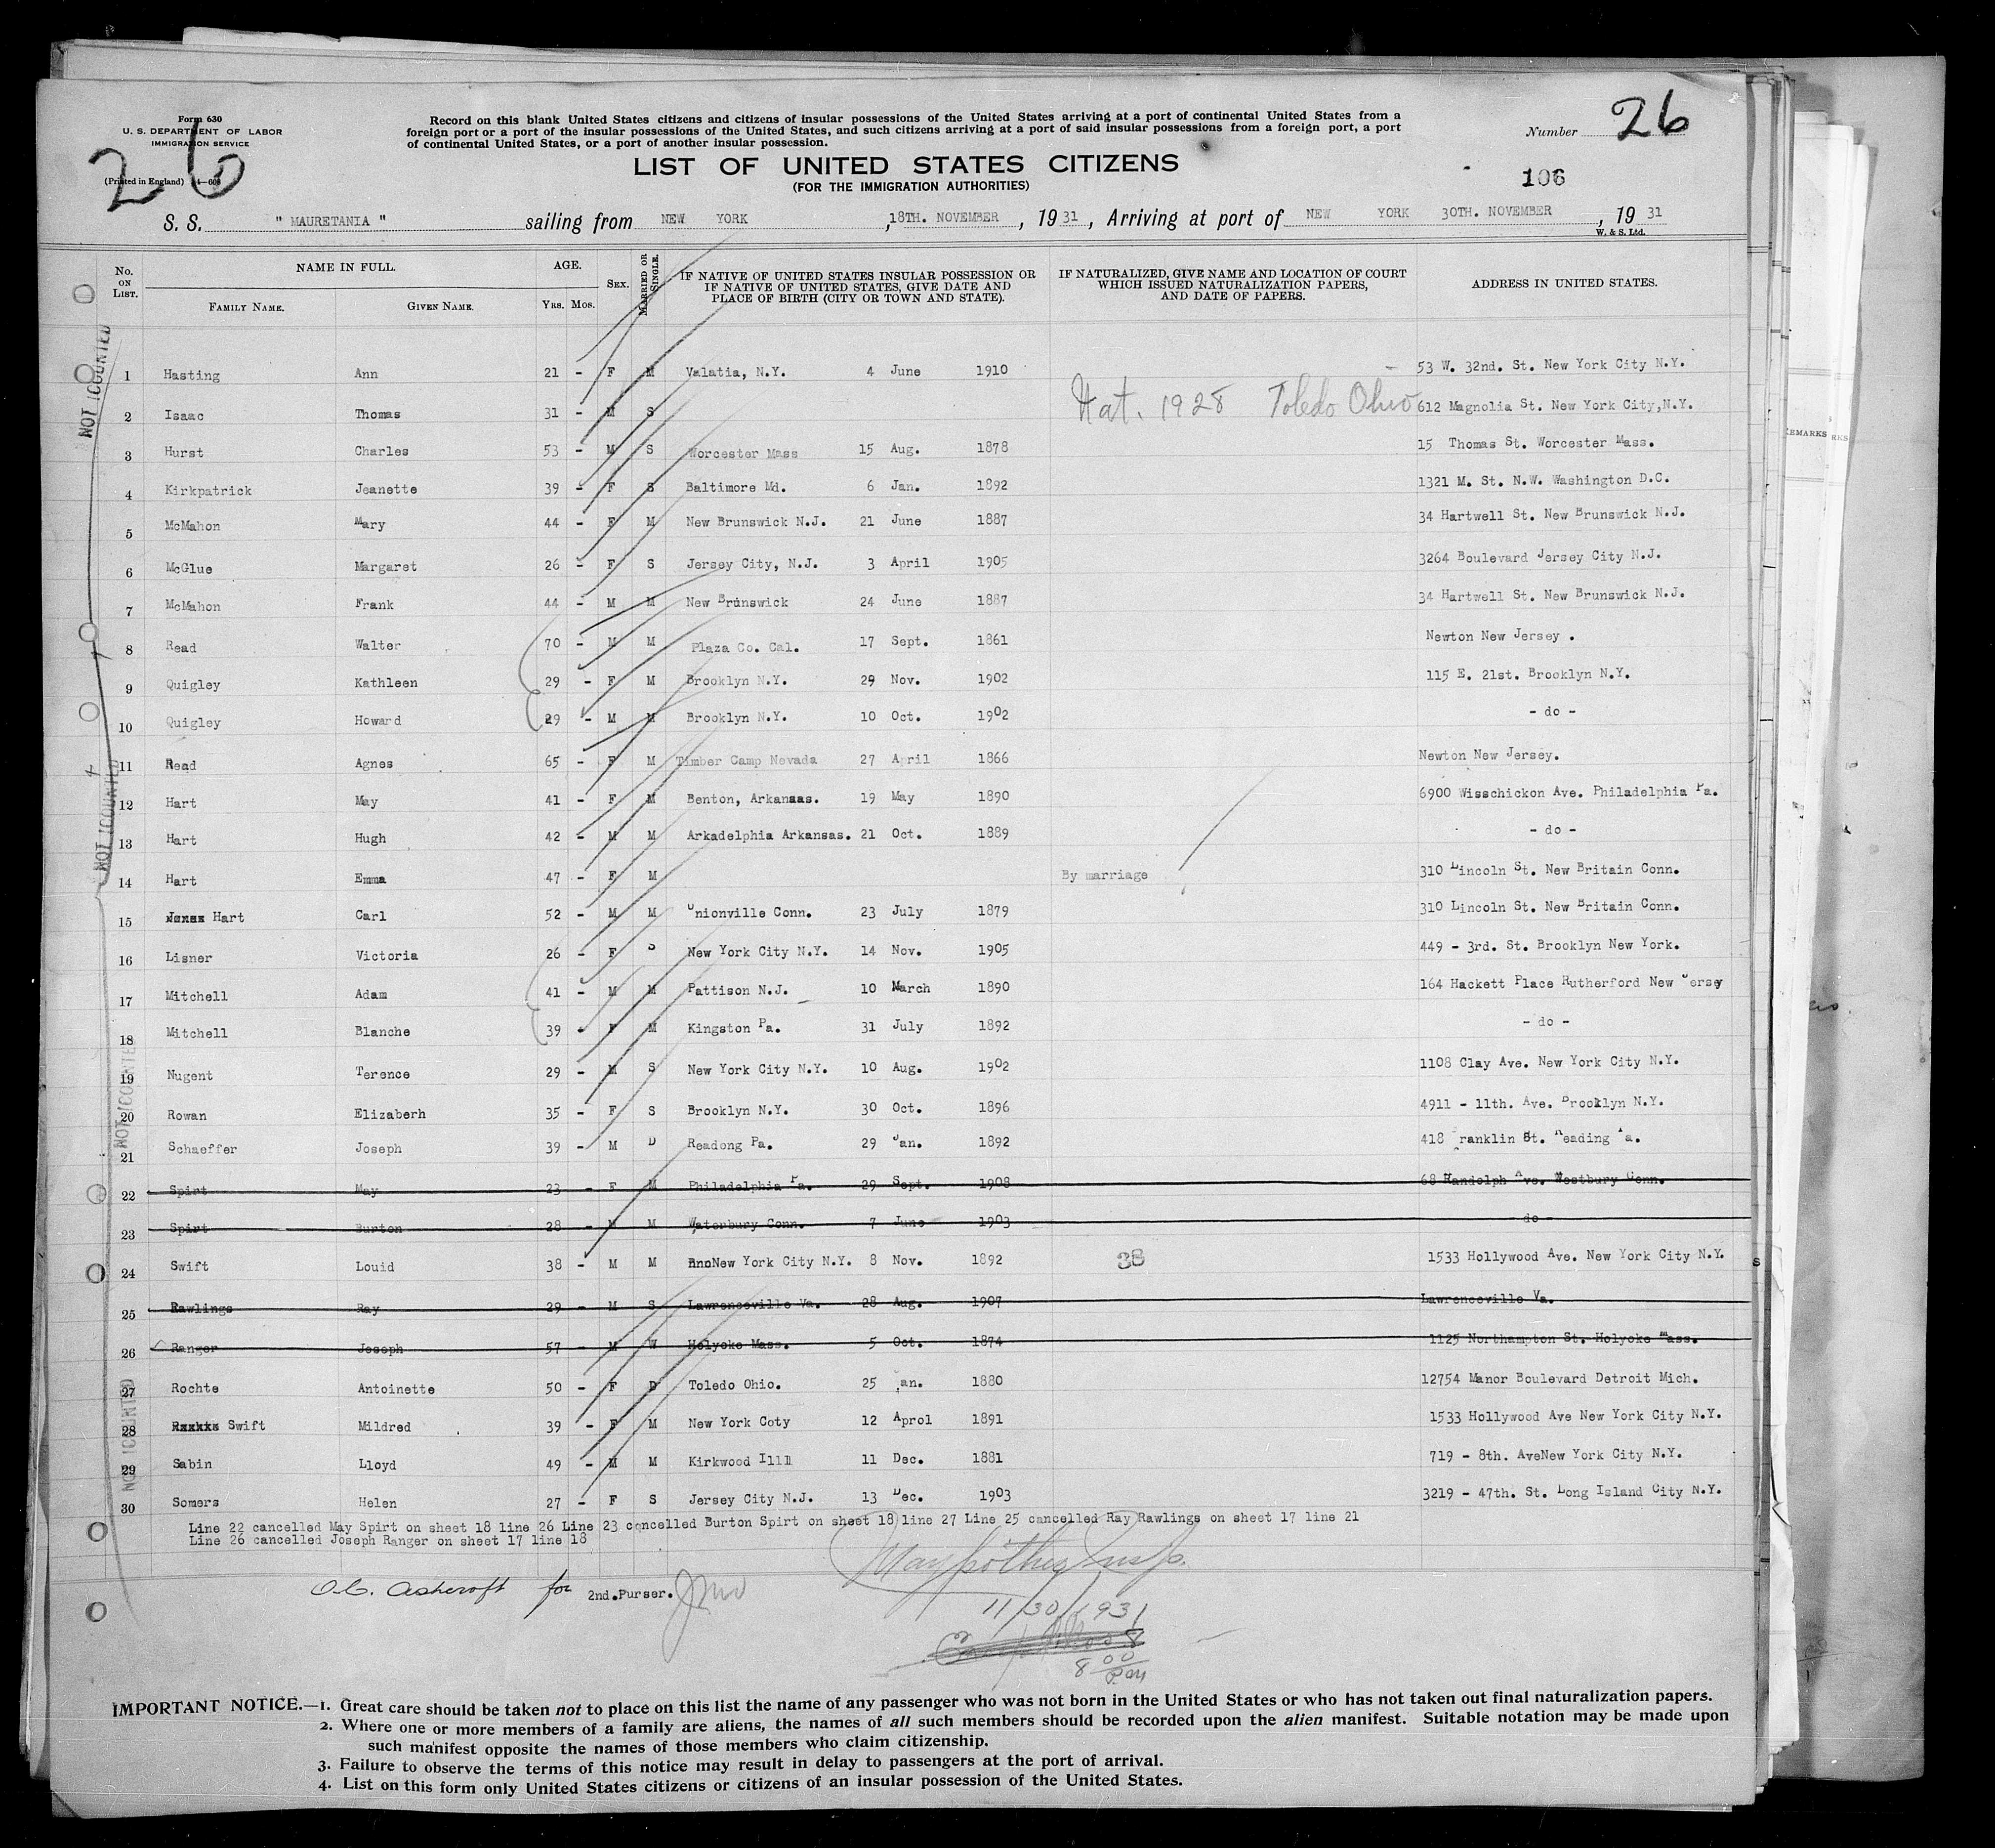 Form 630
U. S. DEPARTMENT OF LABOR
IMMIGRATION SERVICE
(Printed in England)
26
Record on this blank United States citizens and citizens of insular possessions of the United States arriving at a port of continental United States from a
foreign port or a port of the insular possessions of the United States, and such citizens arriving at a port of said insular possessions from a foreign port, a port
of continental United States, or a port of another insular possession.
Number 26
LIST OF UNITED STATES CITIZENS
(FOR THE IMMIGRATION AUTHORITIES)
106
S. S. " MAURETANIA " sailing from NEW YORK ,18TH. NOVEMBER , 1931 , Arriving at port of NEW YORK 30TH. NOVEMBER , 1931
W. & S. Ltd.
No. ON LIST. NAME IN FULL. FAMILY NAME. GIVEN NAME. AGE. Yrs. Mos. SEX. MARRIED OR SINGLE. IF NATIVE OF UNITED STATES INSULAR POSSESSION OR IF NATIVE OF UNITED STATES, GIVE DATE AND PLACE OF BIRTH (CITY OR TOWN AND STATE). IF NATURALIZED, GIVE NAME AND LOCATION OF COURT WHICH ISSUED NATURALIZATION PAPERS, AND DATE OF PAPERS. ADDRESS IN UNITED STATES.
NOT COUNTED
1 Hasting Ann 21 - F M Valatia, N.Y. 4 June 1910 53 W. 32nd. St. New York City N.Y.
2 Isaac Thomas 31 - M S Nat. 1928 Toledo Ohio 612 Magnolia St. New York City,N.Y.
3 Hurst Charles 53 - M S Worcester Mass 15 Aug. 1878 15 Thomas St. Worcester Mass.
4 Kirkpatrick Jeanette 39 - F S Baltimore Md. 6 Jan. 1892 1321 M. St. N.W. Washington D.C.
5 McMahon Mary 44 - F M New Brunswick N.J. 21 June 1887 34 Hartwell St. New Brunswick N.J.
6 McGlue Margaret 26 - F S Jersey City, N.J. 3 April 1905 3264 Boulevard Jersey City N.J.
7 McMahon Frank 44 - M M New Brunswick 24 June 1887 34 Hartwell St. New Brunswick N.J.
8 Read Walter 70 - M M Plaza Co. Cal. 17 Sept. 1861 Newton New Jersey .
9 Quigley Kathleen 29 - F M Brooklyn N.Y. 29 Nov. 1902 115 E. 21st. Brooklyn N.Y.
10 Quigley Howard 29 - M M Brooklyn N.Y. 10 Oct. 1902 - do -
11 Read Agnes 65 - F M Timber Camp Nevada 27 April 1866 Newton New Jersey.
12 Hart May 41 - F M Benton, Arkansas. 19 May 1890 6900 Wisschickon Ave. Philadelphia Pa.
13 Hart Hugh 42 - M M Arkadelphia Arkansas. 21 Oct. 1889 - do -
NOT COUNTED
14 Hart Emma 47 - F M By marriage 310 Lincoln St. New Britain Conn.
15 Hart Carl 52 - M M Unionville Conn. 23 July 1879 310 Lincoln St. New Britain Conn.
16 Lisner Victoria 26 - F S New York City N.Y. 14 Nov. 1905 449 - 3rd. St. Brooklyn New York.
17 Mitchell Adam 41 - M M Pattison N.J. 10 March 1890 164 Hackett Place Rutherford New Jersey
18 Mitchell Blanche 39 - F M Kingston Pa. 31 July 1892 - do -
19 Nugent Terence 29 - M S New York City N.Y. 10 Aug. 1902 1108 Clay Ave. New York City N.Y.
NOT COUNTED
20 Rowan Elizaberh 35 - F S Brooklyn N.Y. 30 Oct. 1896 4911 - 11th. Ave. Brooklyn N.Y.
21 Schaeffer Joseph 39 - M D Readong Pa. 29 Jan. 1892 418 Franklin St. Reading Pa.
22 Spirt May 23 - F M Philadelphia Pa. 29 Sept. 1908 68 Randolph Ave. Westbury Conn.
23 Spirt Burton 28 - M M Waterbury Conn. 7 June 1903 - do -
24 Swift Louid 38 - M M New York City N.Y. 8 Nov. 1892 38 1533 Hollywood Ave. New York City N.Y.
25 Rawlings Ray 29 - M S Lawrenceville Va. 28 Aug. 1907 Lawrenceville Va.
26 Ranger Joseph 57 - M W Holyoke Mass. 5 Oct. 1874 1125 Northampton St. Holyoke Mass.
27 Rochte Antoinette 50 - F D Toledo Ohio. 25 Jan. 1880 12754 Manor Boulevard Detroit Mich.
28 Swift Mildred 39 - F M New York Coty 12 Aprol 1891 1533 Hollywood Ave New York City N.Y.
NOT COUNTED
29 Sabin Lloyd 49 - M M Kirkwood Illl 11 Dec. 1881 719 - 8th. AveNew York City N.Y.
30 Somers Helen 27 - F S Jersey City N.J. 13 Dec. 1903 3219 - 47th. St. Long Island City N.Y.
Line 22 cancelled May Spirt on sheet 18 line 26 Line 23 cancelled Burton Spirt on sheet 18 line 27 Line 25 cancelled Ray Rawlings on sheet 17 line 21
Line 26 cancelled Joseph Ranger on sheet 17 line 18
O.C. Ashcroft for 2nd.Purser.
11/30/1931
8 00
IMPORTANT NOTICE.—1. Great care should be taken not to place on this list the name of any passenger who was not born in the United States or who has not taken out final naturalization papers.
2. Where one or more members of a family are aliens, the names of all such members should be recorded upon the alien manifest. Suitable notation may be made upon
such manifest opposite the names of those members who claim citizenship.
3. Failure to observe the terms of this notice may result in delay to passengers at the port of arrival.
4. List on this form only United States citizens or citizens of an insular possession of the United States.